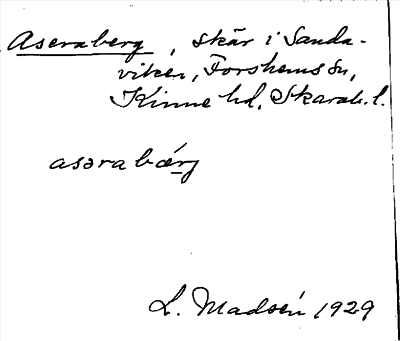 Aseraberg, skär i Sanda-
viken, Forshems sn,
Kinne hd, Skarab. l.
asərabærj
L. Madsén 1929